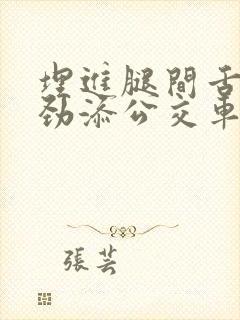 埋進腿間舌
勁添公交車
張芸